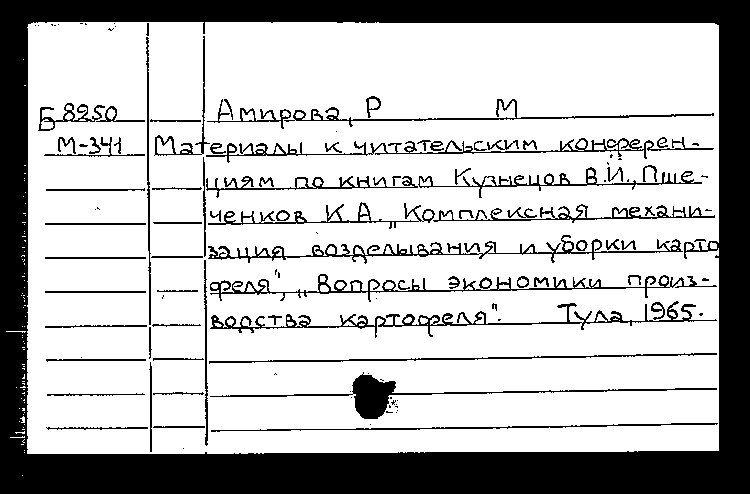 Б 8250 Амирова, Р М
М-341 Материалы к читательским конферен-
циям по книгам Кузнецов В.И., Пше-
ченков К.А. „Комплексная механи-
зация возделывания и уборки карто
феля", „Вопросы экономики произ-
водства картофеля". Тула, 1965.